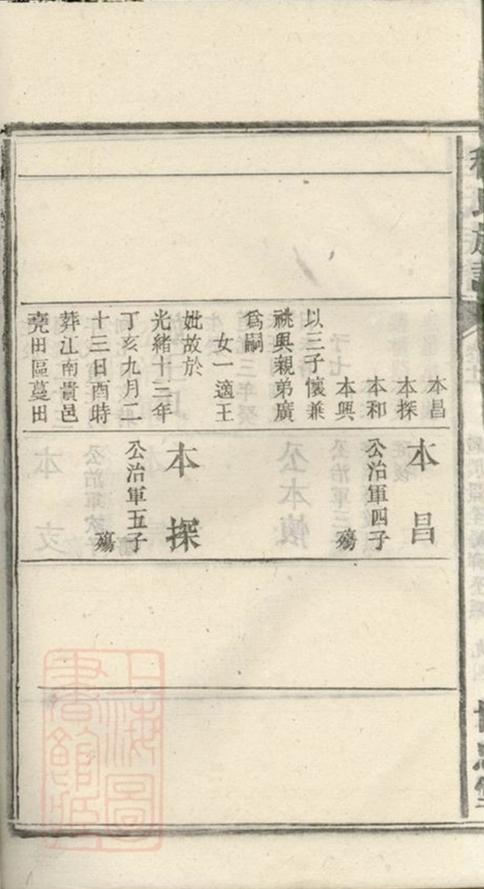 本昌
本探
本和
本興
以三子懷兼
祧興親弟廣
爲嗣
女一適王
妣故於
光緒十三年
丁亥九月二
十三日酉時
葬江南貴邑
堯田區蔓田
本昌
公治軍四子
殤
本探
公治軍五子
殤
上海圖書館藏